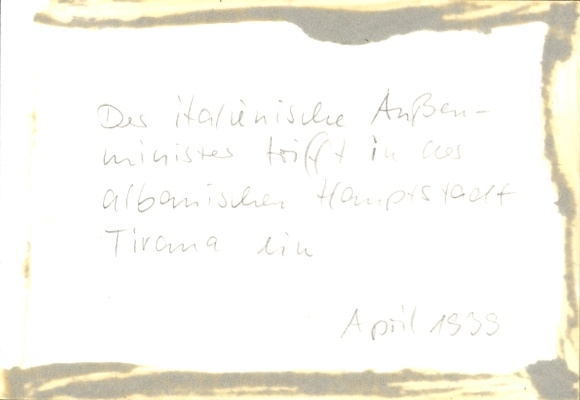 Der italienische Außen-
minister trifft in der
albanischen Hauptstadt
Tirana ein
April 1939